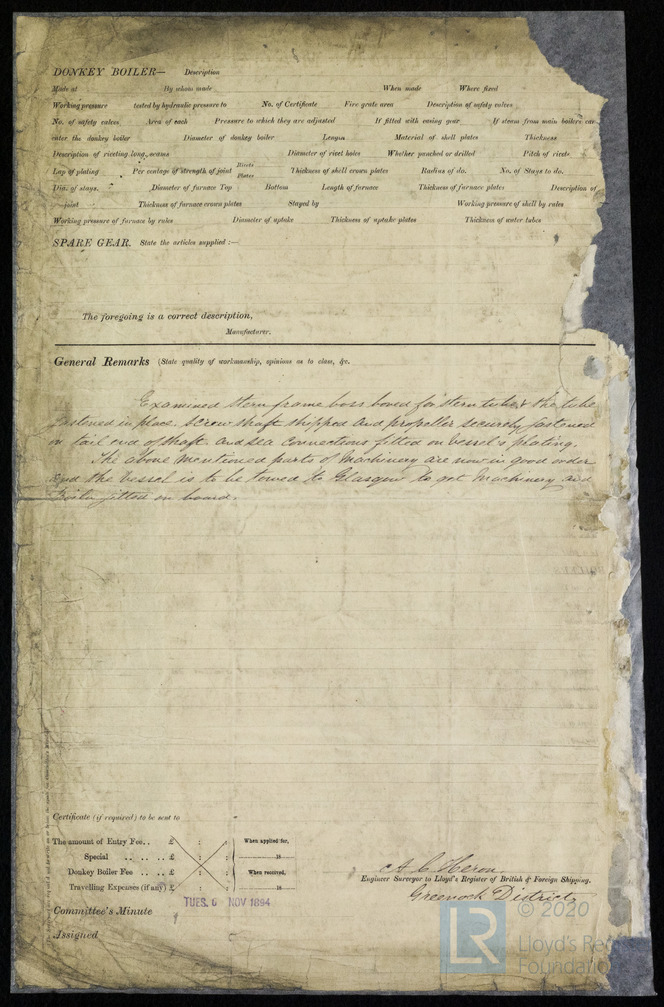 DONKEY BOILER— Description
Made at By whom made When made Where fixed
Working pressure tested by hydraulic pressure to No. of Certificate Fire grate area Description of safety valves
No. of safety valves Area of each Pressure to which they are adjusted If fitted with easing gear If steam from main boilers can
enter the donkey boiler Diameter of donkey boiler Length Material of shell plates Thickness
Description of riveting long. seams Diameter of rivet holes Whether punched or drilled Pitch of rivets
Lap of plating Per centage of strength of joint Rivets Plates Thickness of shell crown plates Radius of do. No. of Stays to do.
Dia. of stays. Diameter of furnace Top Bottom Length of furnace Thickness of furnace plates Description of
joint Thickness of furnace crown plates Stayed by Working pressure of shell by rules
Working pressure of furnace by rules Diameter of uptake Thickness of uptake plates Thickness of water tubes
SPARE GEAR. State the articles supplied :—
The foregoing is a correct description,
Manufacturer.
General Remarks (State quality of workmanship, opinions as to class, &c.
Examined stern frame boss bored for stern tube & the tube
fastened in place. Screw shaft shipped and propeller securely fastened
on tail end of shaft. and sea connections fitted on vessel's plating.
The above mentioned parts of Machinery are now in good order
and the vessel is to be towed to Glasgow to get Machinery and
Boiler fitted on board.
Certificate (if required) to be sent to
The amount of Entry Fee.. £ : : When applied for,
Special .. .. .. .. £ : : 18
Donkey Boiler Fee .. .. £ : : When received,
Travelling Expenses (if any) £ : : 18
A. C. Heron
Engineer Surveyor to Lloyd's Register of British & Foreign Shipping.
Greenock District
TUES. 6 NOV 1894
Committee's Minute
Assigned
LR
© 2020
Lloyd's Re
Foundation